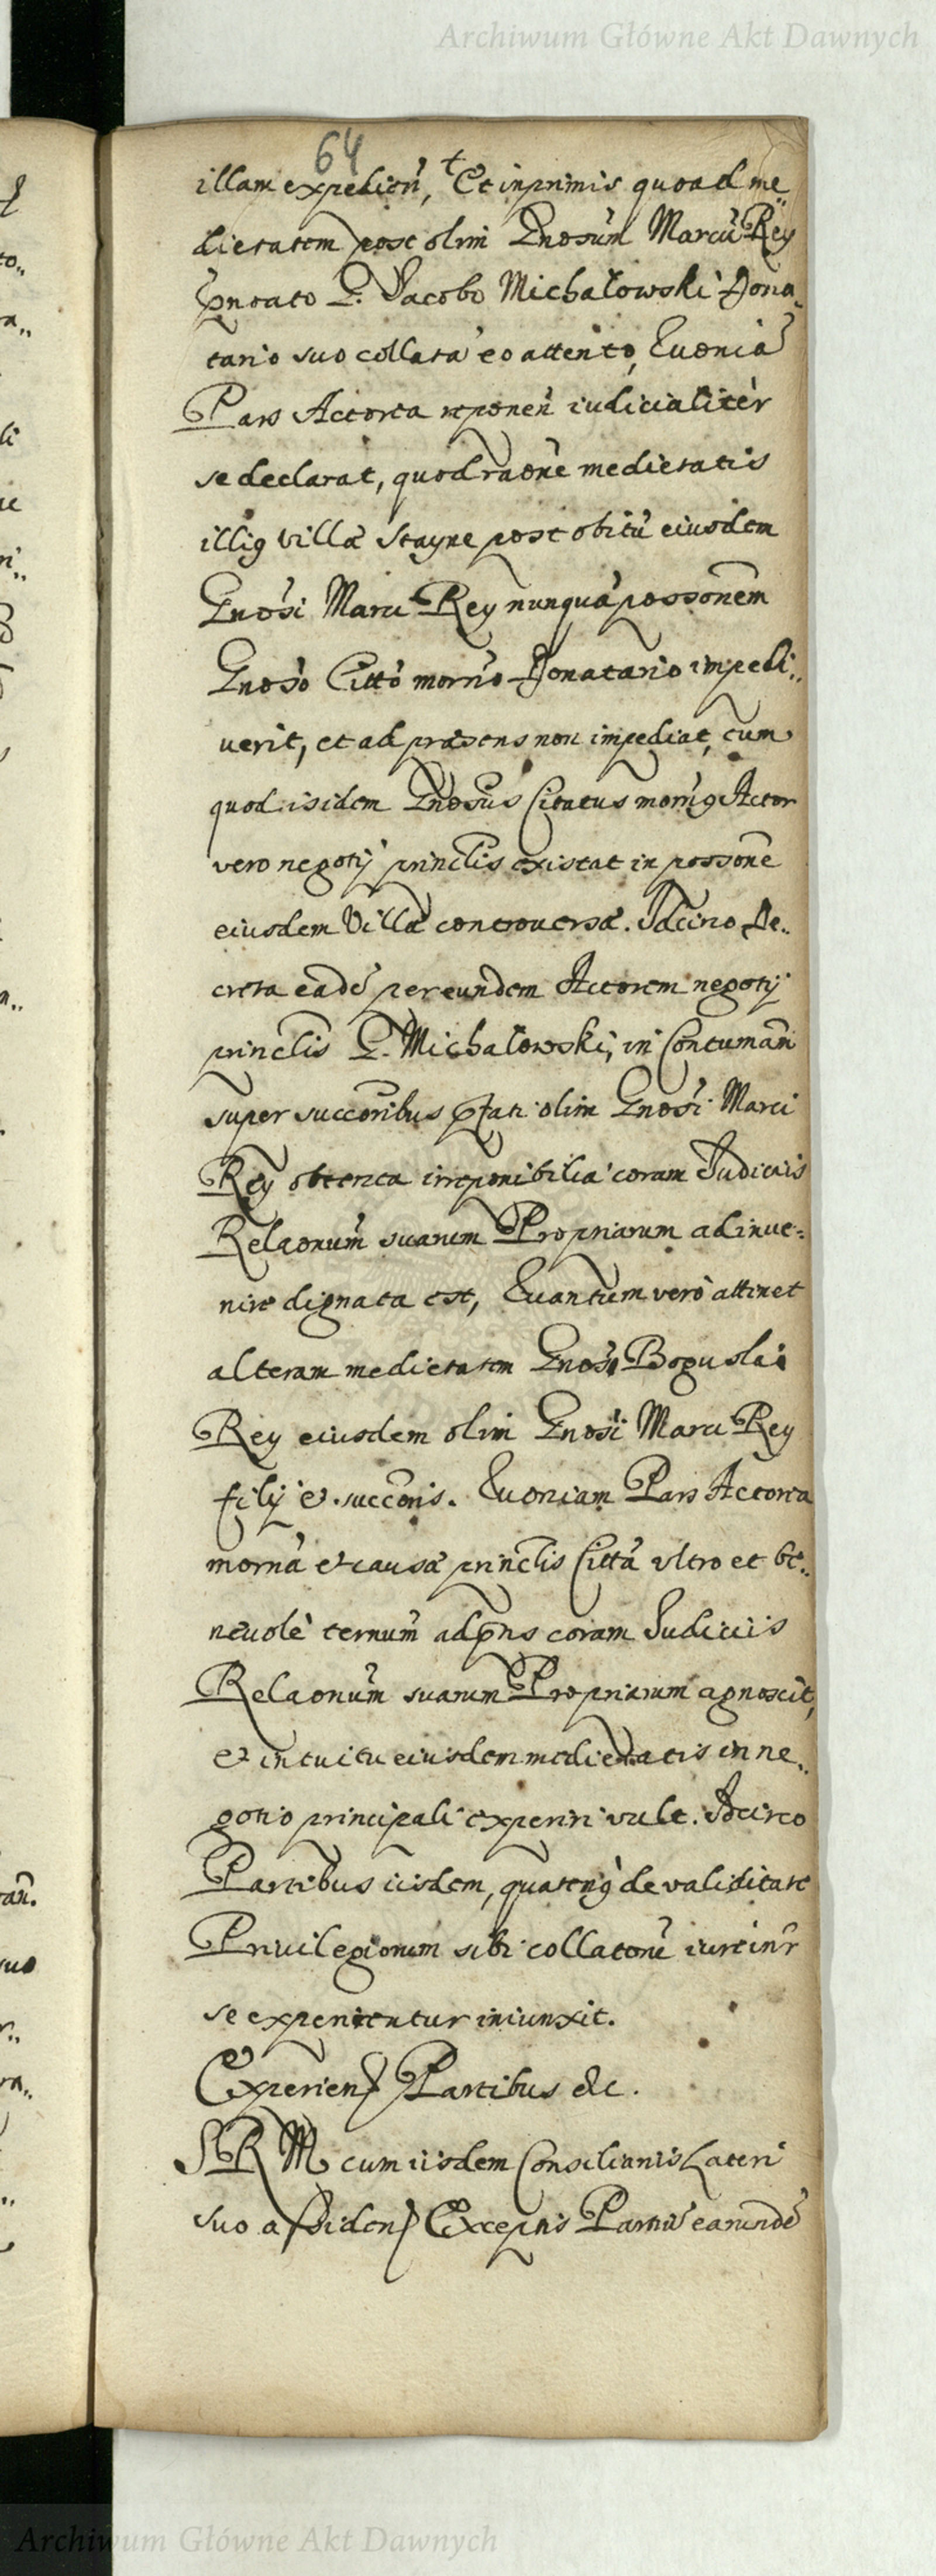 Archiwum Główne Akt Dawnych
64
illam expedien, Et inprimis quoad me
dietatem post olim Gnosum Marcũ Rey
Gnoato G. Jacobo Michałowski Dona
tario suo collata eo attento, Quonia
Pars Actorea reponen iudicialiter
se declarat, quod raone medietatis
illiq villæ Stayne post obitũ eiusdem
Gnosi Marci Rey nunqua possonem
Gnoso Citto morno Donatario impedi„
uerit, et ad præsens non impediat, cum
quod isidem Gnosus Citatus mornq Actor
vero negotij princlis existat in possone
eiusdem Villæ controuersæ. Idcirco De„
creta eade per eundem Actorem negotij
princlis G. Michałowski, in Contuman
super succoribus ptati olim Gnosi Marci
Rey obtenta irreponibilia coram Judiciis
Relaonum suarum Propriarum adinue„
nire dignata est, Quantum vero attinet
alteram medietatem Gnosi Boguslai
Rey eiusdem olim Gnosi Marci Rey
filij et succoris. Quoniam Pars Actorea
morna et causæ princlis Citta vltro et be„
neuole ternum ad pns coram Judiciis
Relaonum suarum Propriarum agnoscit,
et intuitu eiusdem medietatis in ne„
gotio principali experiri vult. Idcirco
Partibus iisdem, quatenq de validitate
Priuilegiorum sibi collatoru iure inr
se experientur iniunxit.
Experien Partibus etc.
S R M cum iisdem Consiliariis Lateri
suo assiden Exceptis Partiu earunde
Archiwum Główne Akt Dawnych